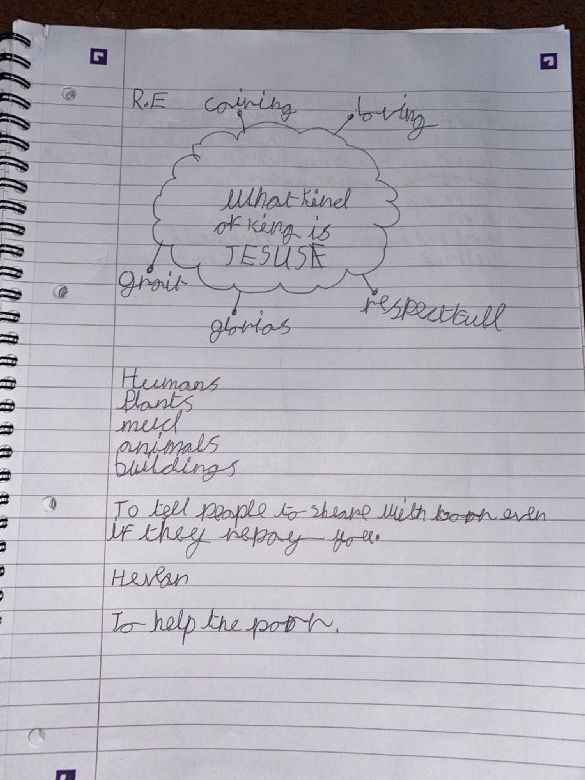 R.E
cairing
loving
What kind
of king is
JESUS
grait
glorias
respectfull
Humans
Plants
mud
animals
buildings
To tell people to sheare with even
if they repay you.
Hevan
To help the poor.